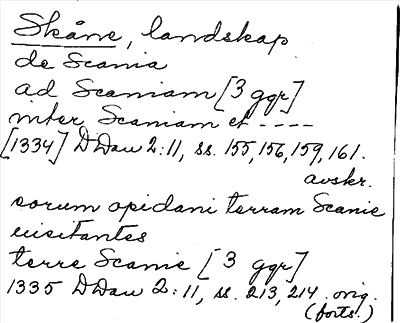 Skåne, landskap
de Scania
ad Scaniam [3 ggr]
inter Scaniam et ----
[1334] DDan 2:11, ss. 155, 156, 159, 161.
avskr.
eorum opidani terram Scanie
uisitantes
terre Scanie [3 ggr]
1335 DDan 2:11, ss. 213, 214. orig.
(forts.)